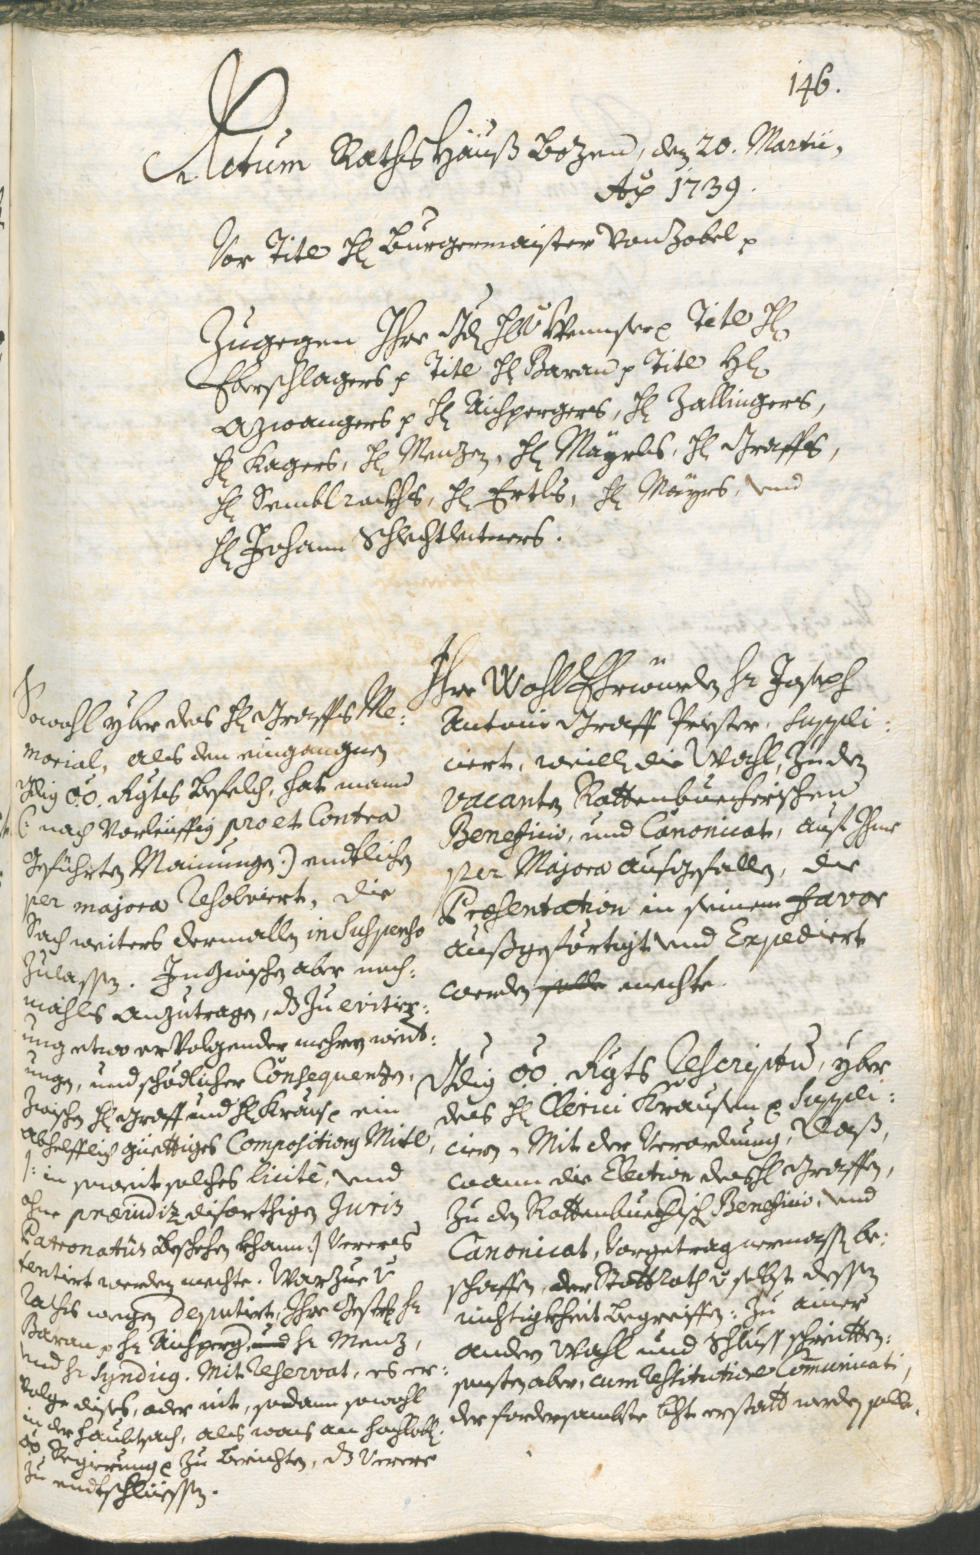 146.
Actum Raths Hauß Bozen, den 20. Martii,
Ao 1739.
Vor Titl H: Burgermaister von Zobel p
Zugegen Ihro Titl H:
Eberschlagers p Titl H: Baran p Titl H:
Azwangers p H: Aichpergers, H: Zallingers,
H: Kagers, H: Menzen, H: Mayrls, H: Graffs,
H: Semblraths, H: Ertls, H: Mayrs, und
H: Johann Schlechtleitners.
Ihro Wohl Ehrwürden Hr Joseph
Antoni Graff Priester, Suppli:
ciert, weill die Wahl, zu den
vacanten Rottenbuecherischen
Beneficio, und Canonicat, auf Ihne
per Majora ausgefallen, die
Præsentation in seinem Favor
außgefertigt und Expediert
werden solle mechte.
Sowohl yber des H: Graffs Me:
morial, als den eingangnen
gdig OÖ. Rgts Befelch, hat mann
(: nach vorleiffig pro et Contra
geführten Mainungen :) endtlichen
per majora Resolviert, die
Sach weiters dermallen in Suspenso
zulassen. Inzwischen aber noch:
mahls anzutragen, dz zu evitier:
ung etwo ervolgender mehrer weit:
ungen, und schödlicher Consequenzen,
zwischen H: Graff und H: Kraus p ein
abhelfflich güettiges Compositions Mitl,
/: in soweit solches licite, und
ohne præiudiz diserthigen Juris
Patronatus beschehen khann :/ Vorers
tentirt werden mechte. Warzue v
Raths wegen deputiert, Ihro Gestr: Hr
Baran p Hr Aichperg, und Hr Menz,
und Hr Syndicg. Mit Reservat, es er:
volge dises, oder nit, sodann sowohl
in der haubtsach, als was an hochlobl:
OÖ. Regierung p zu berichten, dz Verere
zu endtschliessen.
Gdig OÖ. Rgts Rescriptum, yber
des H: Clerici Krausen p Suppli:
ciern, Mit der Verordnung, daß,
wann die Election des H: Graffen,
zu den Rottenbuechisch Beneficio, und
Canonicat, vorgetragnermassen be:
schaffen, der Stattrath v selbst dessen
nichtigkheit begreiffen: zu ainer
andern Wahl und Schluss schreitten:
sonsten aber, cum Restitutione Communicati,
der fordersambste bricht erstatt werden solle.